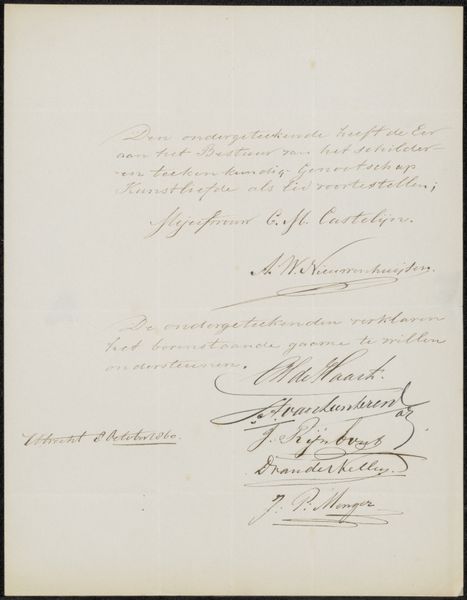 Den ondergeteekende heeft de Eer
aan het Bestuur van het schilder-
en teekenkundig Genootschap
Kunstliefde als Lid voortestellen;
Mejufvrouw C. M. Castelijn.
A. W. Nieuwenhuijsen.
De ondergeteekenden verklaren
het bovenstaande gaarne te willen
ondersteunen.
de Haas
van Lunteren
Utrecht 8 October 1860.
J. Rijnbout
D van der Kellen
J. P. Menger